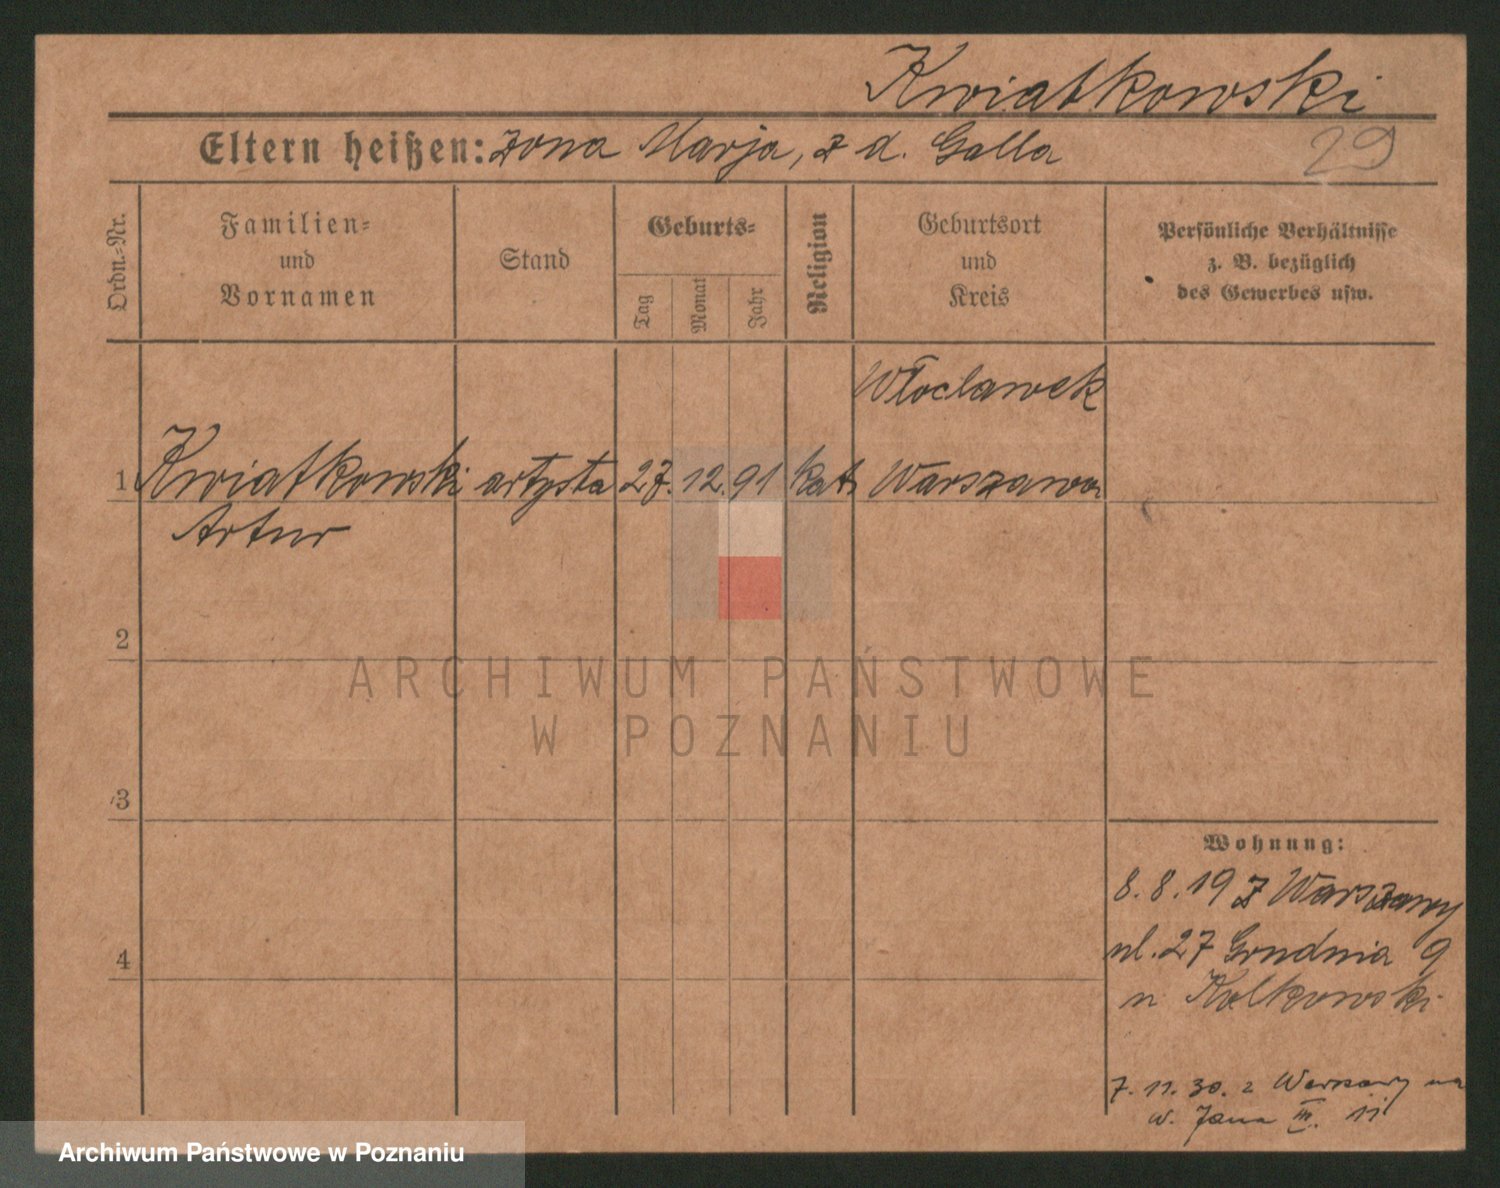 Kwiatkowski
Eltern heißen: żona Marja, z d. Galla
29
Ordn.-Nr.
Familien-
und
Vornamen
Stand
Geburts-
Tag
Monat
Jahr
Religion
Geburtsort
und
Kreis
Persönliche Verhältnisse
z. B. bezüglich
des Gewerbes usw.
Włocławek
1 Kwiatkowski artysta 27. 12. 91 kat. Warszawa
Artur
2
ARCHIWUM PAŃSTWOWE
W POZNANIU
3
Wohnung:
8. 8. 19 z Warszawy
ul. 27 Grudnia 9
4
7. 11. 30. z Warszawy na
w. Jana III. 11
Archiwum Państwowe w Poznaniu